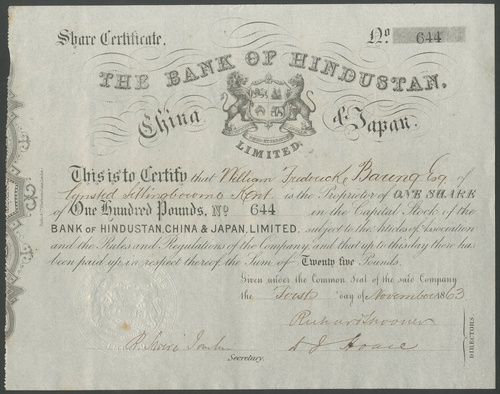 Share Certificate.
No 644
THE BANK OF HINDUSTAN,
China & Japan.
LIMITED.
This is to Certify that William Frederick Baring Esq of
Lynsted Sittingbourne Kent is the Proprietor of ONE SHARE
of One Hundred Pounds. No 644 in the Capital Stock of the
BANK OF HINDUSTAN, CHINA & JAPAN, LIMITED. subject to the Articles of Association
and the Rules and Regulations of the Company, and that up to this day there has
been paid up in respect thereof the Sum of Twenty five Pounds.
Given under the Common Seal of the said Company
the First day of November 1863
Richard Spooner
Secretary.
DIRECTORS.